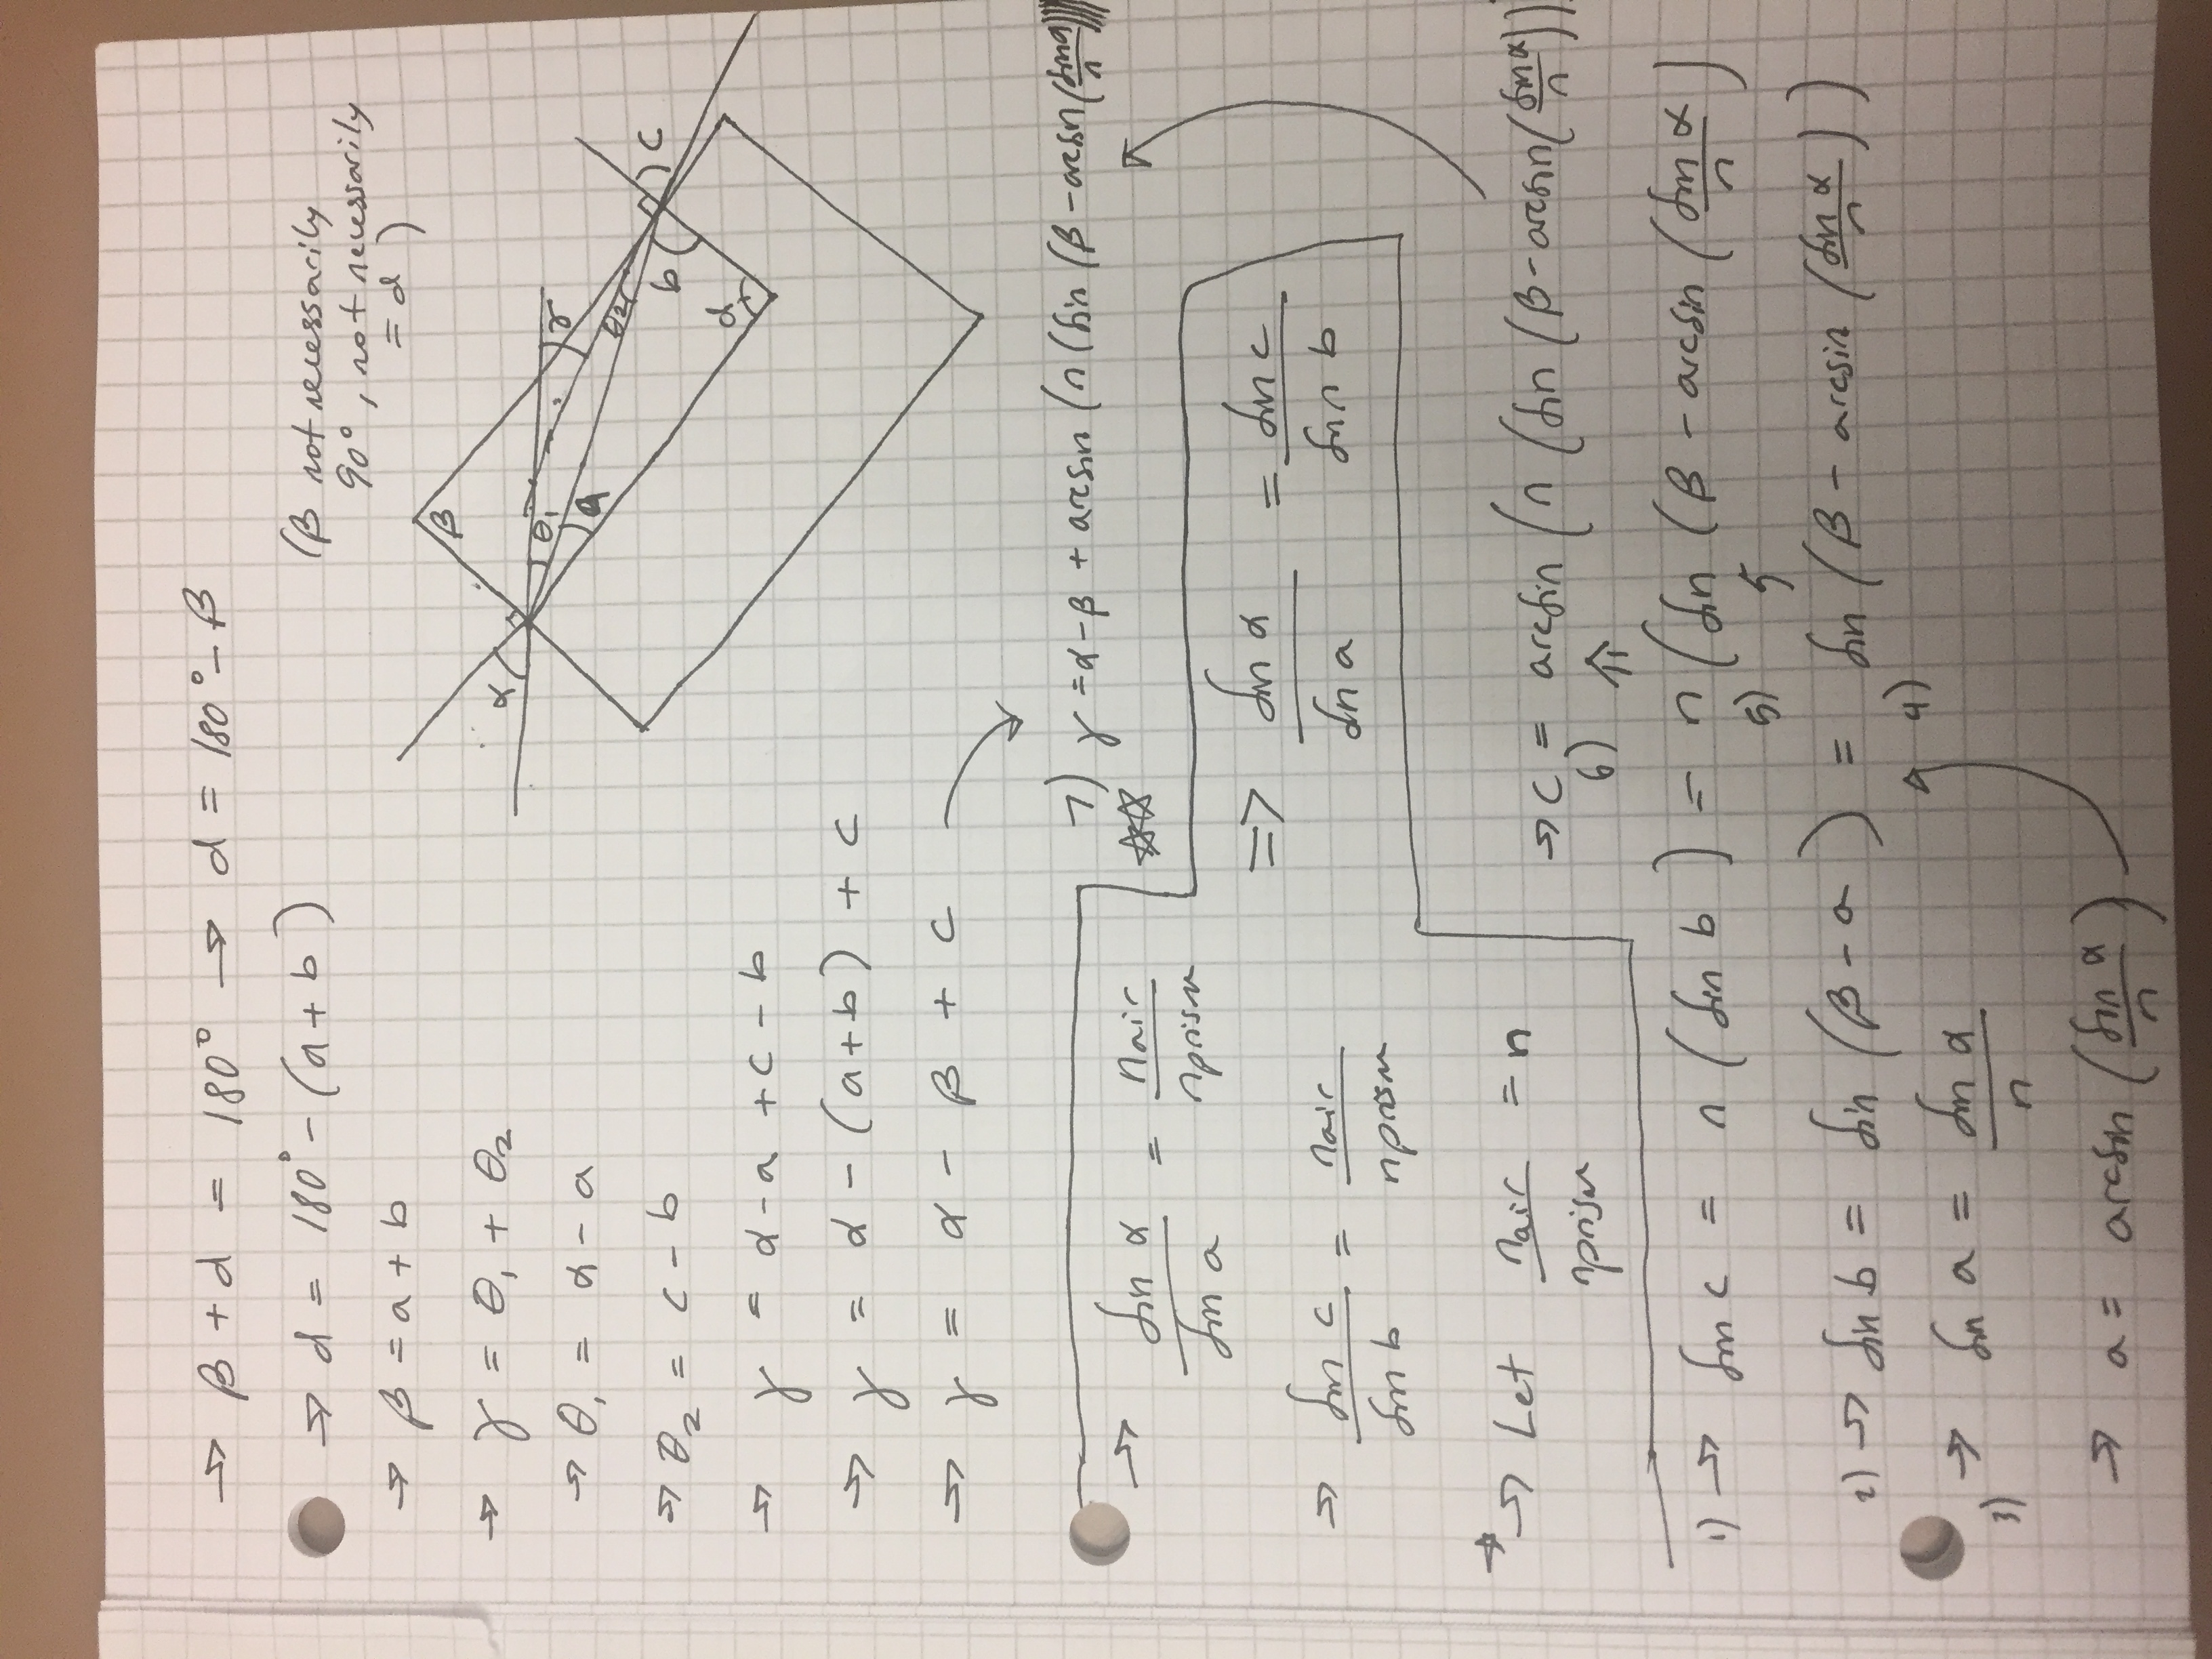 → β + d = 180° → d = 180° - β
→ d = 180° - (a + b)
(β not necessarily
90°, not necessarily
= d)
→ β = a + b
→ γ = θ₁ + θ₂
→ θ₁ = α - a
→ θ₂ = c - b
→ γ = α - a + c - b
→ γ = α - (a + b) + c
→ γ = α - β + c
α
θ₁
a
β
γ
θ₂
b
d
c
7) γ = α - β + arcsin (n (sin (β - arcsin (sin α / n
→ sin α / sin a = nair / nprism
=> sin α / sin a = sin c / sin b
→ sin c / sin b = nair / nprism
* → Let nair / nprism = n
→ c = arcsin (n (sin (β - arcsin (sin α / n))))
6) ⇑
1) → sin c = n (sin b) = n (sin (β - arcsin (sin α / n)
5) 5
2) → sin b = sin (β - a) = sin (β - arcsin (sin α / n))
4)
3) → sin a = sin α / n
→ a = arcsin (sin α / n)